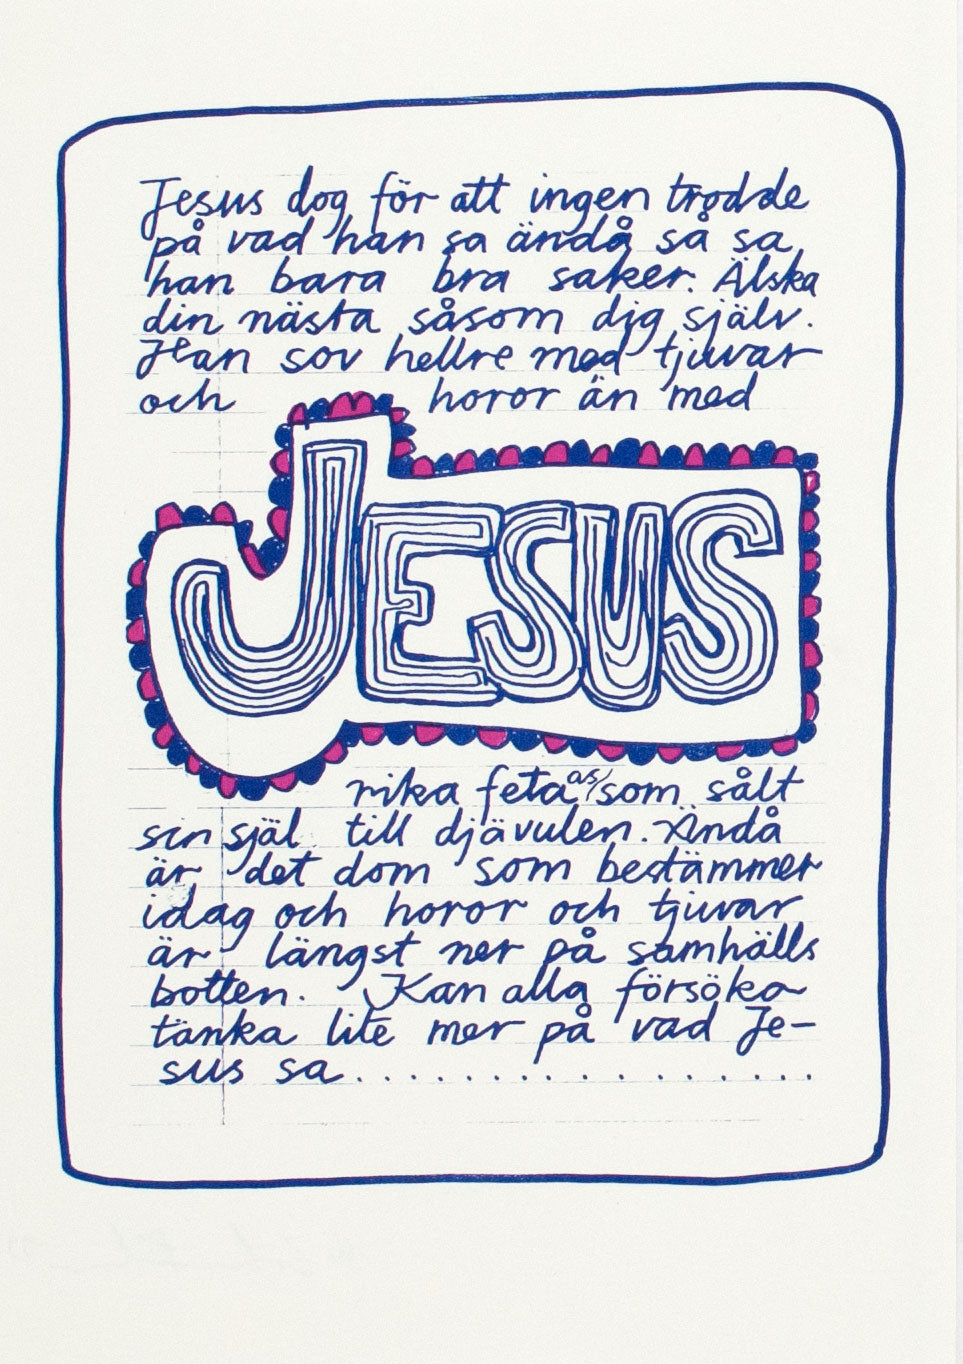 Jesus dog för att ingen trodde
på vad han sa ändå så sa
han bara bra saker. Älska
din nästa såsom dig själv.
Han sov hellre med tjuvar
och horor än med
JESUS
rika feta as som sålt
sin själ till djävulen. Ändå
är det dom som bestämmer
idag och horor och tjuvar
är längst ner på samhälls
botten. Kan alla försöka
tänka lite mer på vad Je–
sus sa..................